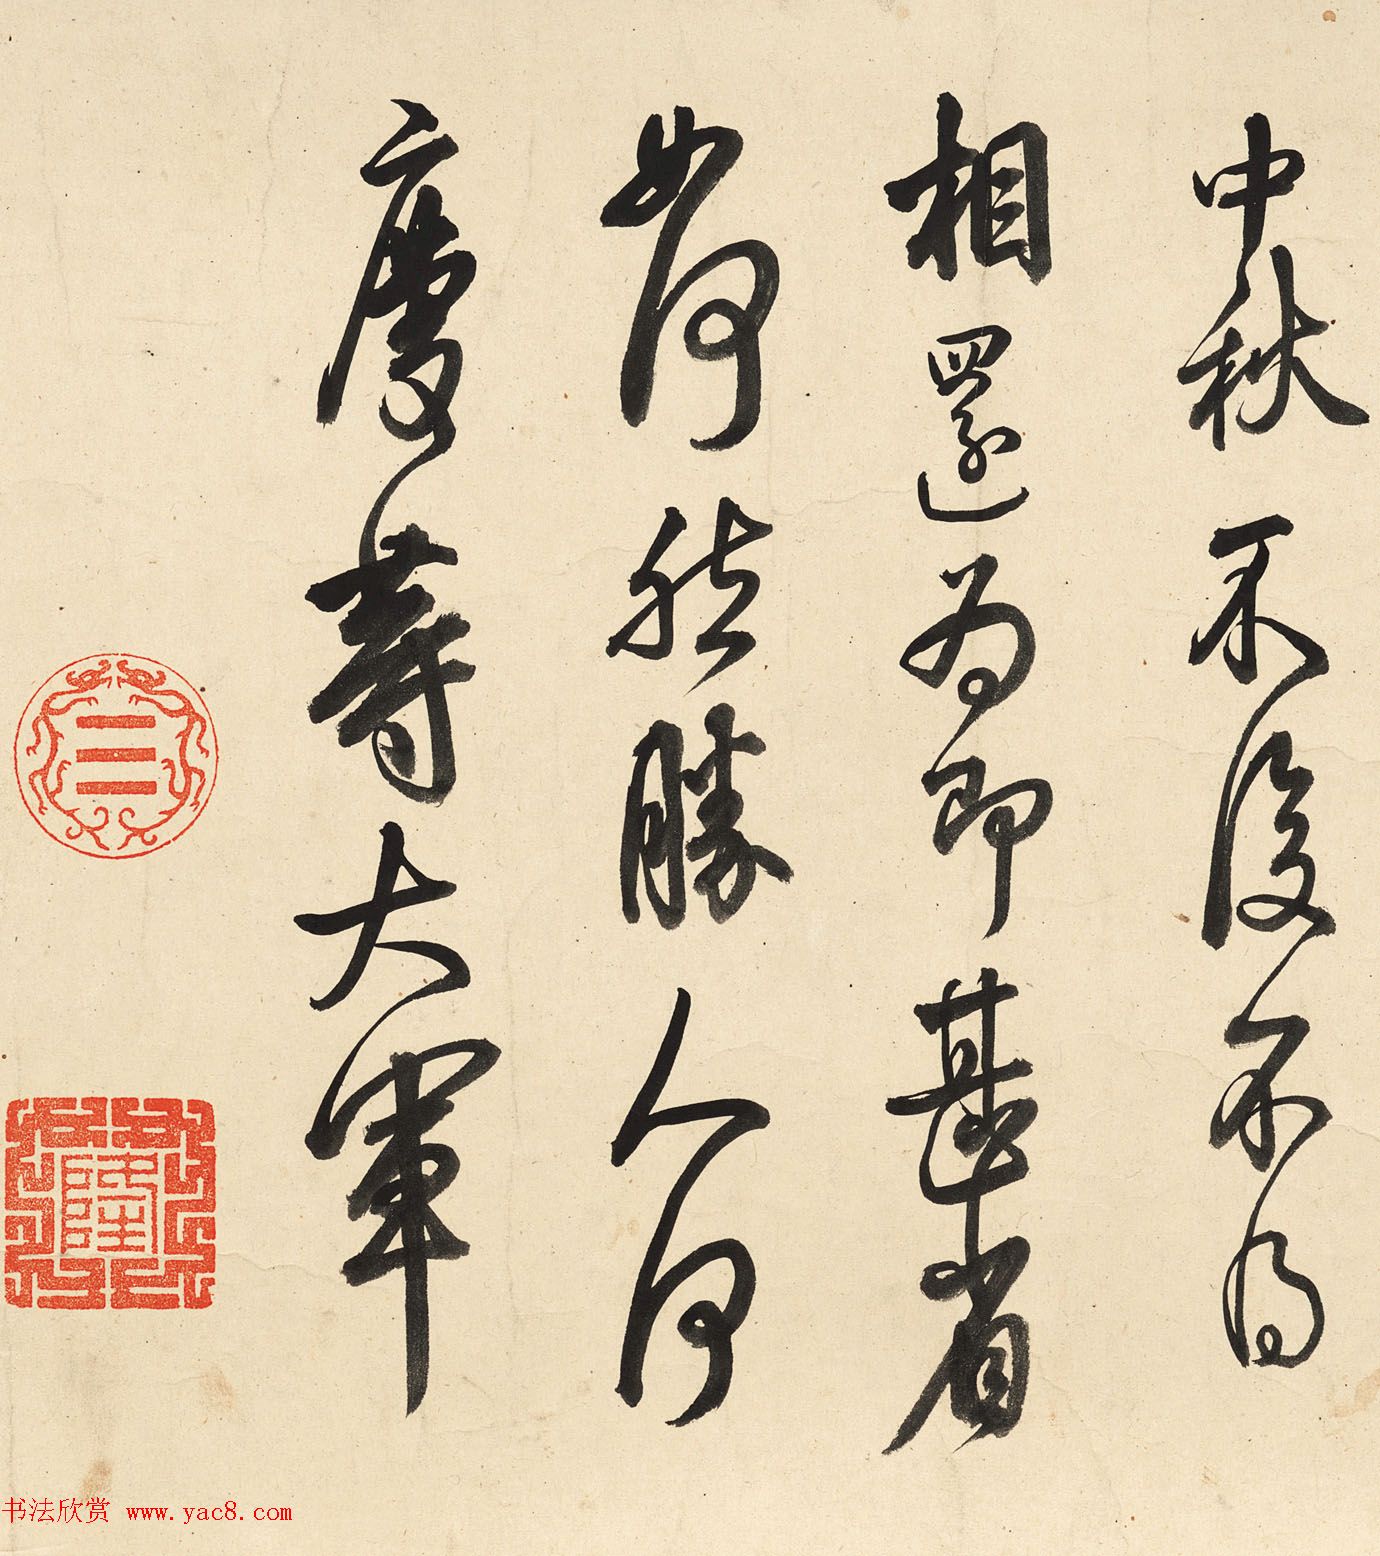 中秋不復不得
相還為即甚省
如何然勝人何
慶等大軍
书法欣赏 www.yac8.com